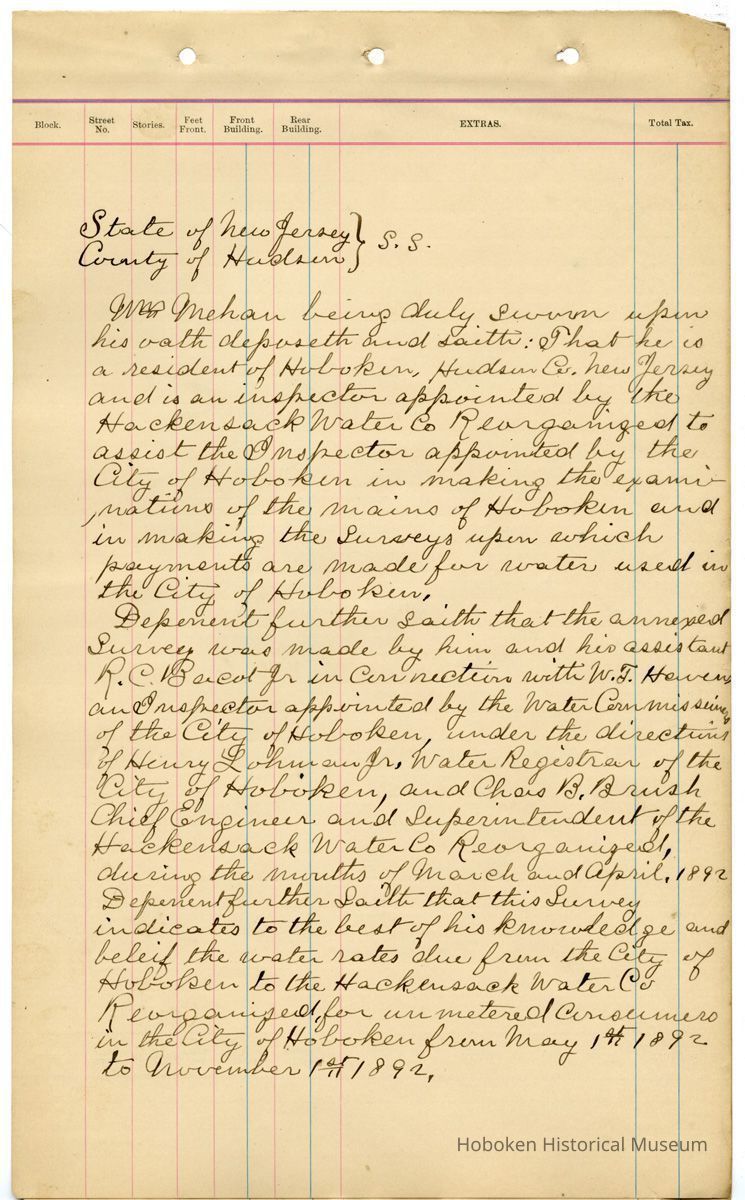 Block. Street No. Stories. Feet Front. Front Building. Rear Building. EXTRAS. Total Tax.
State of New Jersey } S.S.
County of Hudson }
Wm Mehan being duly sworn upon
his oath deposeth and saith: That he is
a resident of Hoboken, Hudson Co. New Jersey
and is an inspector appointed by the
Hackensack Water Co Reorganized to
assist the Inspector appointed by the
City of Hoboken in making the exami-
nations of the mains of Hoboken and
in making the Surveys upon which
payments are made for water used in
the City of Hoboken.
Deponent further saith that the annexed
Survey was made by him and his assistant
R. C. Bacot Jr in Connection with W. T. Havens
an Inspector appointed by the Water Commissioners
of the City of Hoboken, under the directions
of Henry Lohman Jr. Water Registrar of the
City of Hoboken, and Chas B. Brush
Chief Engineer and Superintendent of the
Hackensack Water Co Reorganized,
during the months of March and April, 1892
Deponent further Saith that this Survey
indicates to the best of his knowledge and
beleif the water rates due from the City of
Hoboken to the Hackensack Water Co
Reorganized, for unmetered Consumers
in the City of Hoboken from May 1st 1892
to November 1st 1892.
Hoboken Historical Museum